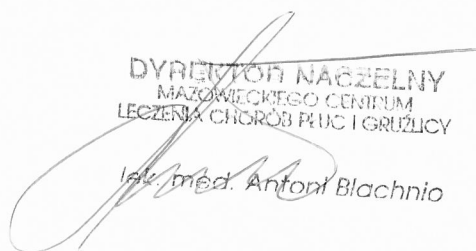 DYREKTOR NACZELNY
MAZOWIECKIEGO CENTRUM
LECZENIA CHORÓB PŁUC I GRUŹLICY
lek. med. Antoni Błachnio